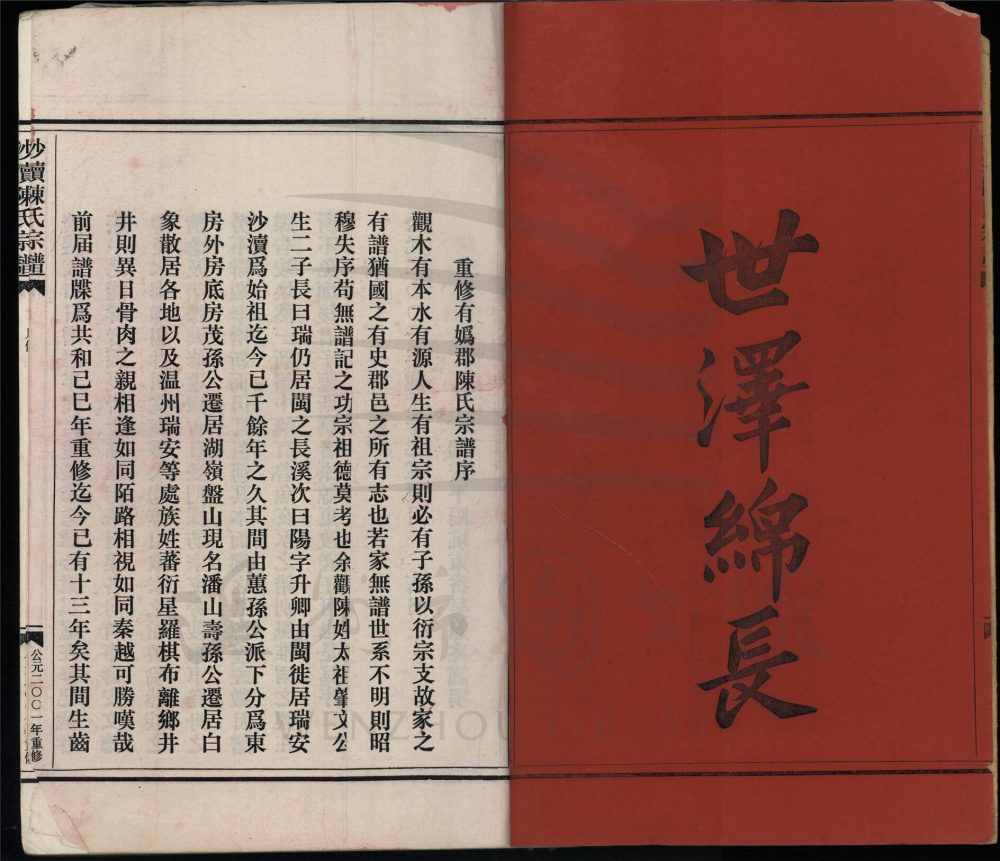 世澤綿長
重修有嬀郡陳氏宗譜序
觀木有本水有源人生有祖宗則必有子孫以衍宗支故家之
有譜猶國之有史郡邑之所有志也若家無譜世系不明則昭
穆失序苟無譜記之功宗祖德莫考也余觀陳姓太祖肇文公
生二子長曰瑞仍居閩之長溪次曰陽字升卿由閩徙居瑞安
沙瀆爲始祖迄今已千餘年之久其間由蕙孫公派下分爲東
房外房底房茂孫公遷居湖嶺盤山現名潘山壽孫公遷居白
象散居各地以及温州瑞安等處族姓蕃衍星羅棋布離鄉井
井則異日骨肉之親相逢如同陌路相視如同秦越可勝嘆哉
前届譜牒爲共和己巳年重修迄今已有十三年矣其間生齒
沙瀆陳氏宗譜
公元二〇〇一年重修
WENZHOU LIBRARY